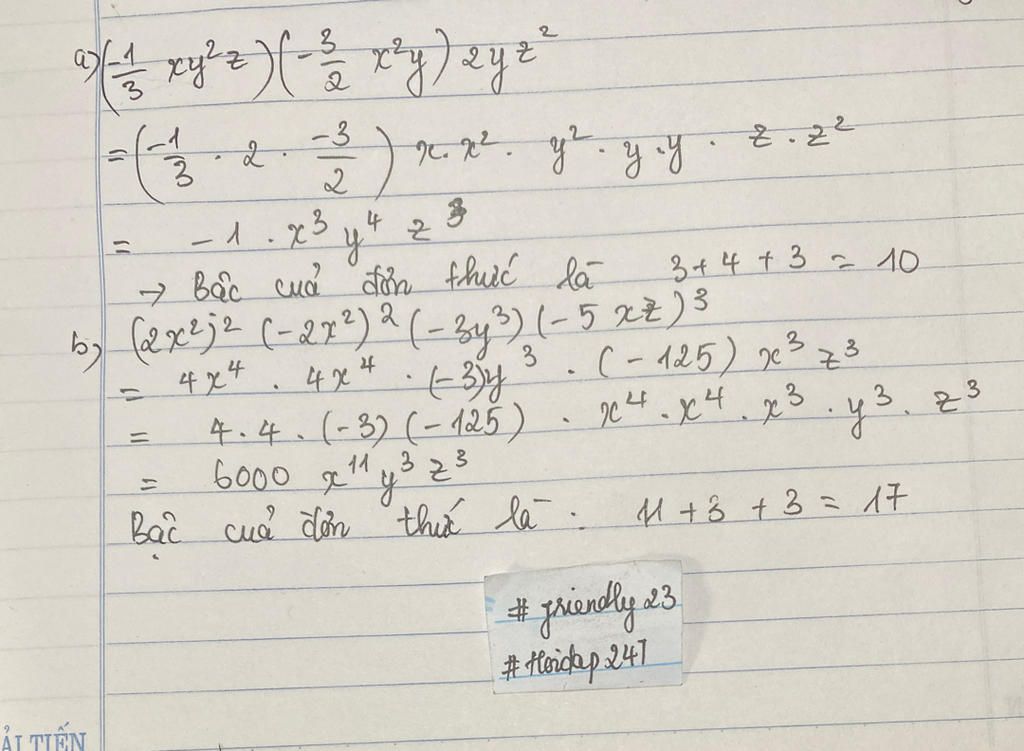 a) (-1/3 xy²z)(-3/2 x²y) 2yz²
= (-1/3 · 2 · -3/2) x · x² · y² · y · y · z · z²
= -1 · x³ y⁴ z³
→ Bậc cuả đơn thức là 3+4+3 = 10
b) (2x²)² (-2x²)² (-3y³) (-5 xz)³
= 4x⁴ · 4x⁴ · (-3)y³ · (-125) x³ z³
= 4 · 4 · (-3) (-125) · x⁴ · x⁴ · x³ · y³ · z³
= 6000 x¹¹ y³ z³
Bậc cuả đơn thức là : 11 + 3 + 3 = 17
# friendly 23
# Hoidap 247
ẢI TIẾN